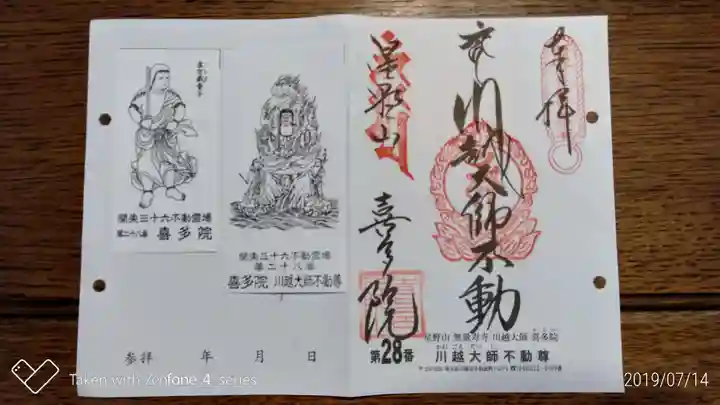 奉拝
川越大師不動
星野山
喜多院
関東三十六不動霊場
第二十八番 喜多院
関東三十六不動霊場
第二十八番
喜多院 川越大師不動尊
星野山 無量寿寺 川越大師 喜多院
第28番 川越大師不動尊
参拝 年 月 日
Taken with Zenfone 4 series
2019/07/14